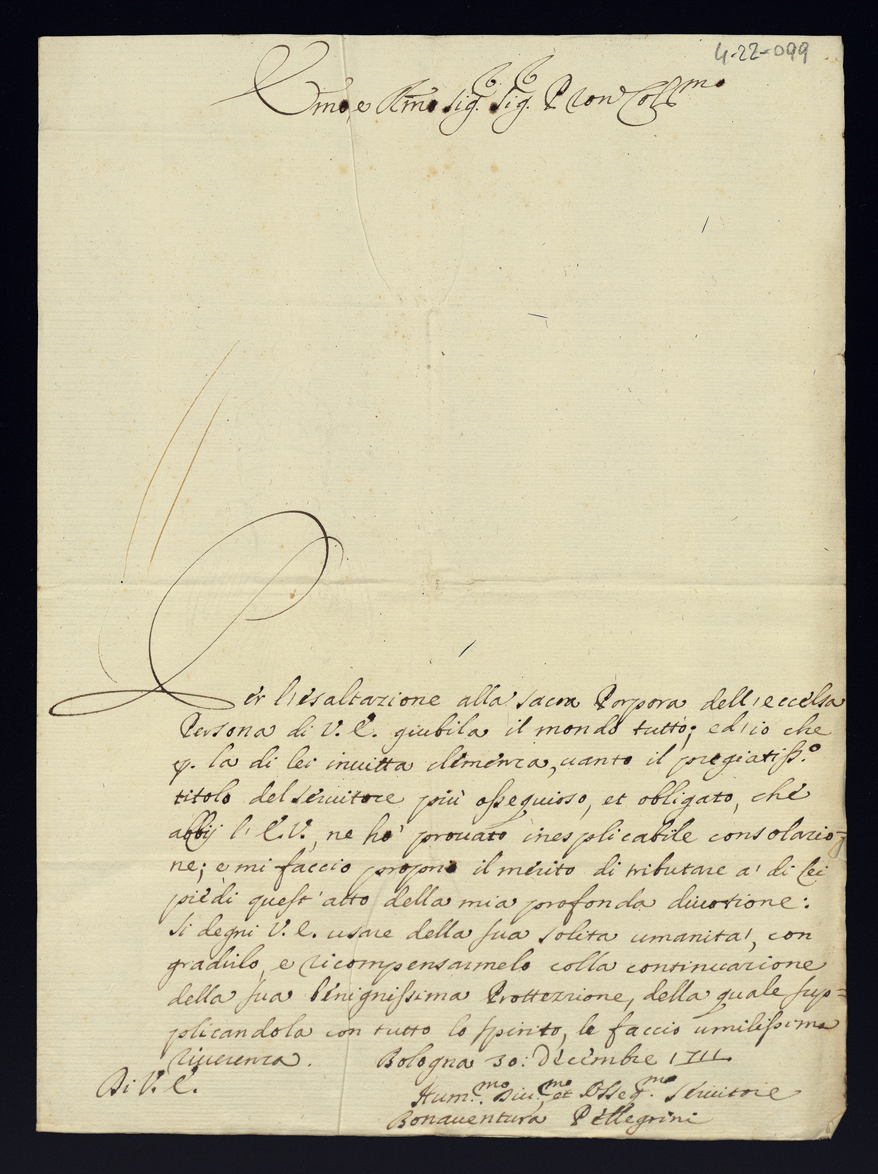 4-22-099
Emo e Rmo Sig.r Sig.r P͞ron Coll.mo
Per l'esaltazione alla sacra Porpora dell'eccelsa
Persona di V. E. giubila il mondo tutto; ed'io che
p. la di lei invitta clemenza, vanto il pregiatiss.o
titolo del servitore più ossequioso, et obligato, che
abbij l'E.V., ne hò provato inesplicabile consolazio=
ne; e mi faccio proprio il merito di tributare a' di lei
piedi quest'atto della mia profonda divotione:
Si degni V. E. usare della sua solita umanita', con
gradirlo, e ricompensarmelo colla continuazione
della sua benignissima Prottezzione, della quale sup=
plicandola con tutto lo spirito, le faccio umilissima
riverenza. Bologna 30: Decembre 1711
Di V. E.
Hum.mo Div.mo et Osseq.mo Servitore
Bonaventura Pellegrini